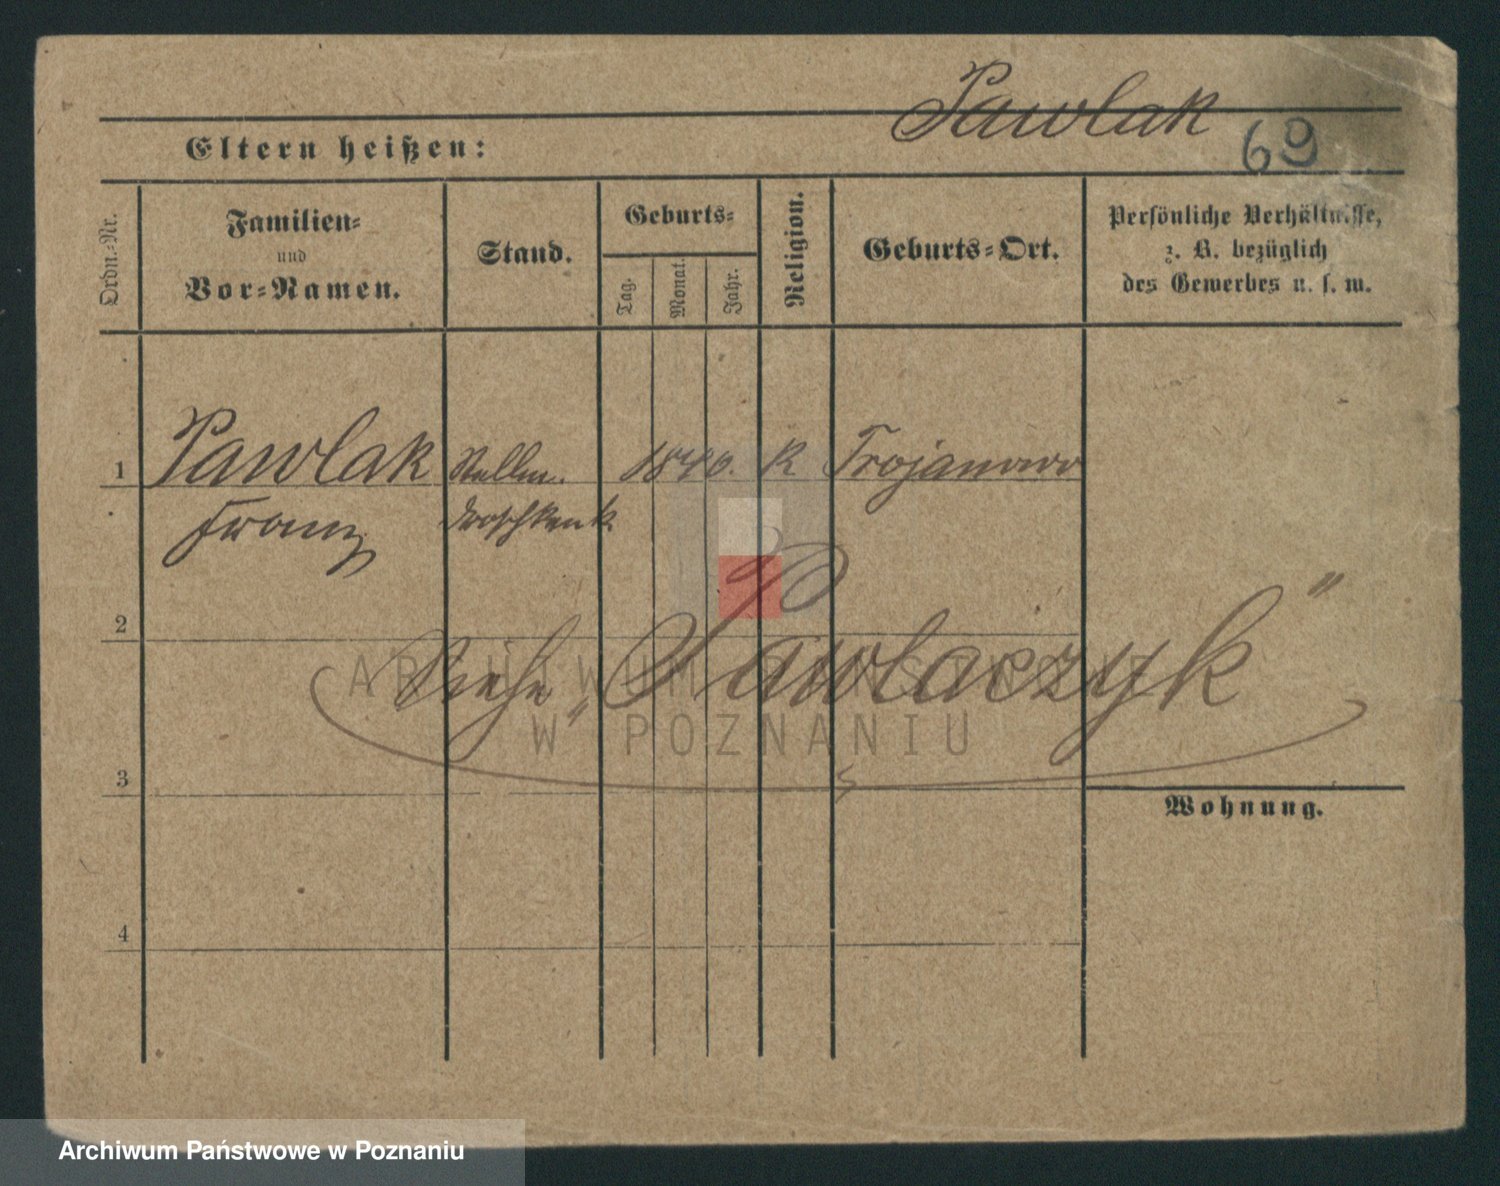 Pawlak
69
Eltern heißen:
Ordn.-Nr.
Familien-
und
Vor-Namen.
Stand.
Geburts-
Tag.
Monat.
Jahr.
Religion.
Geburts-Ort.
Persönliche Verhältnisse,
z. B. bezüglich
des Gewerbes u. s. w.
1 Pawlak Stellm. 1840. K Trojanowo
Franz Droschkenk.
2
Siehe „Pawlaczyk"
ARCHIWUM PAŃSTWOWE
W POZNANIU
3
Wohnung.
4
Archiwum Państwowe w Poznaniu